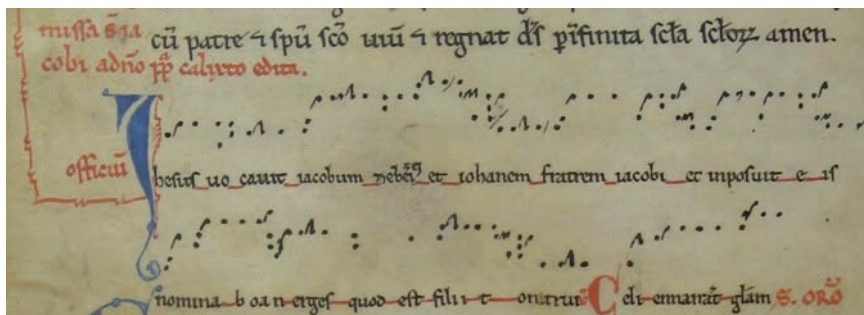 missa s̄ ia
cū patre ⁊ spū sc̄o uiū ⁊ regnat d̄s p̄ infinita scła scłorꝝ amen.
cobi a dn̄o pp̄ calixto edita.
officiū
Ihesus uo cauit iacobum zebēꝰ et iohanem fratrem iacobi et inposuit e is
nomina b oan erges quod est filii t onitrui Celi enarrāt glām S. ORŌ